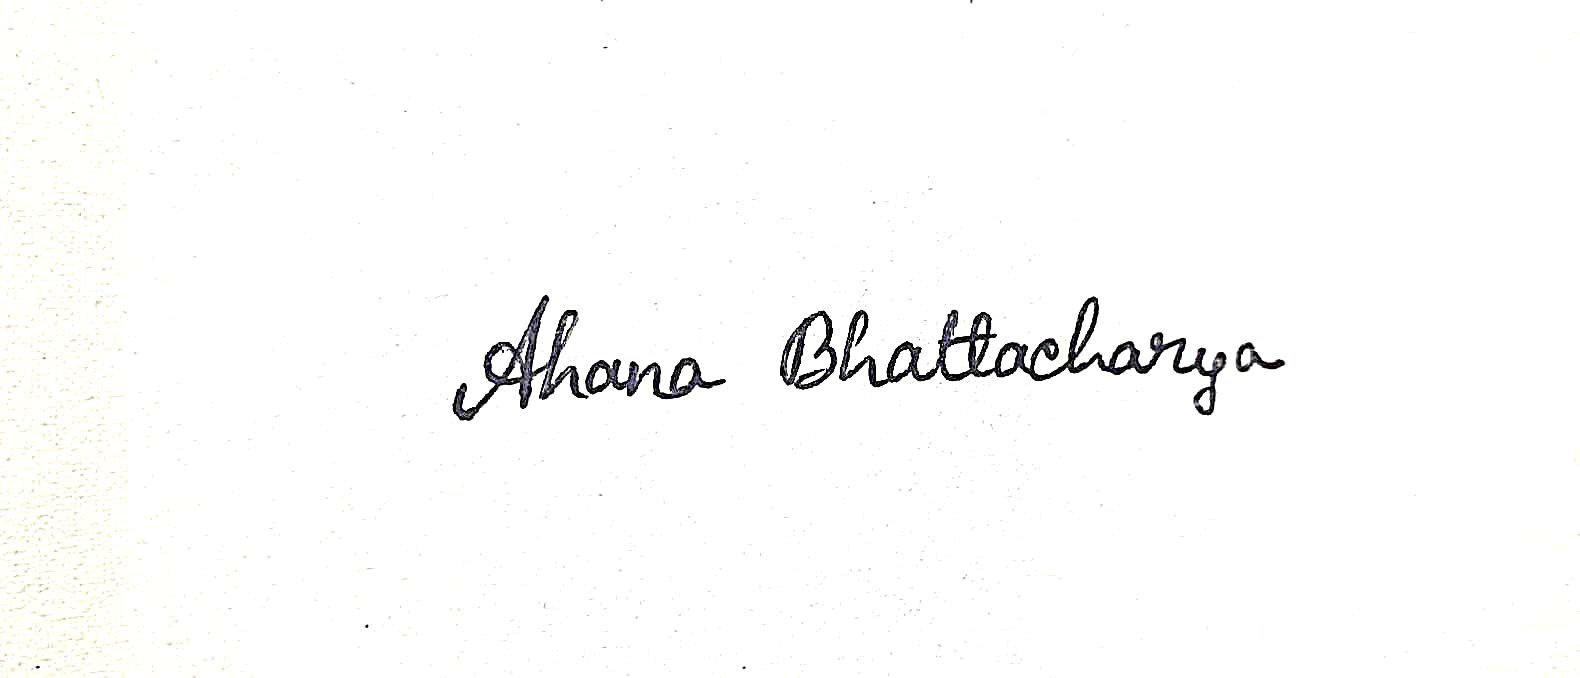 Ahana Bhattacharya